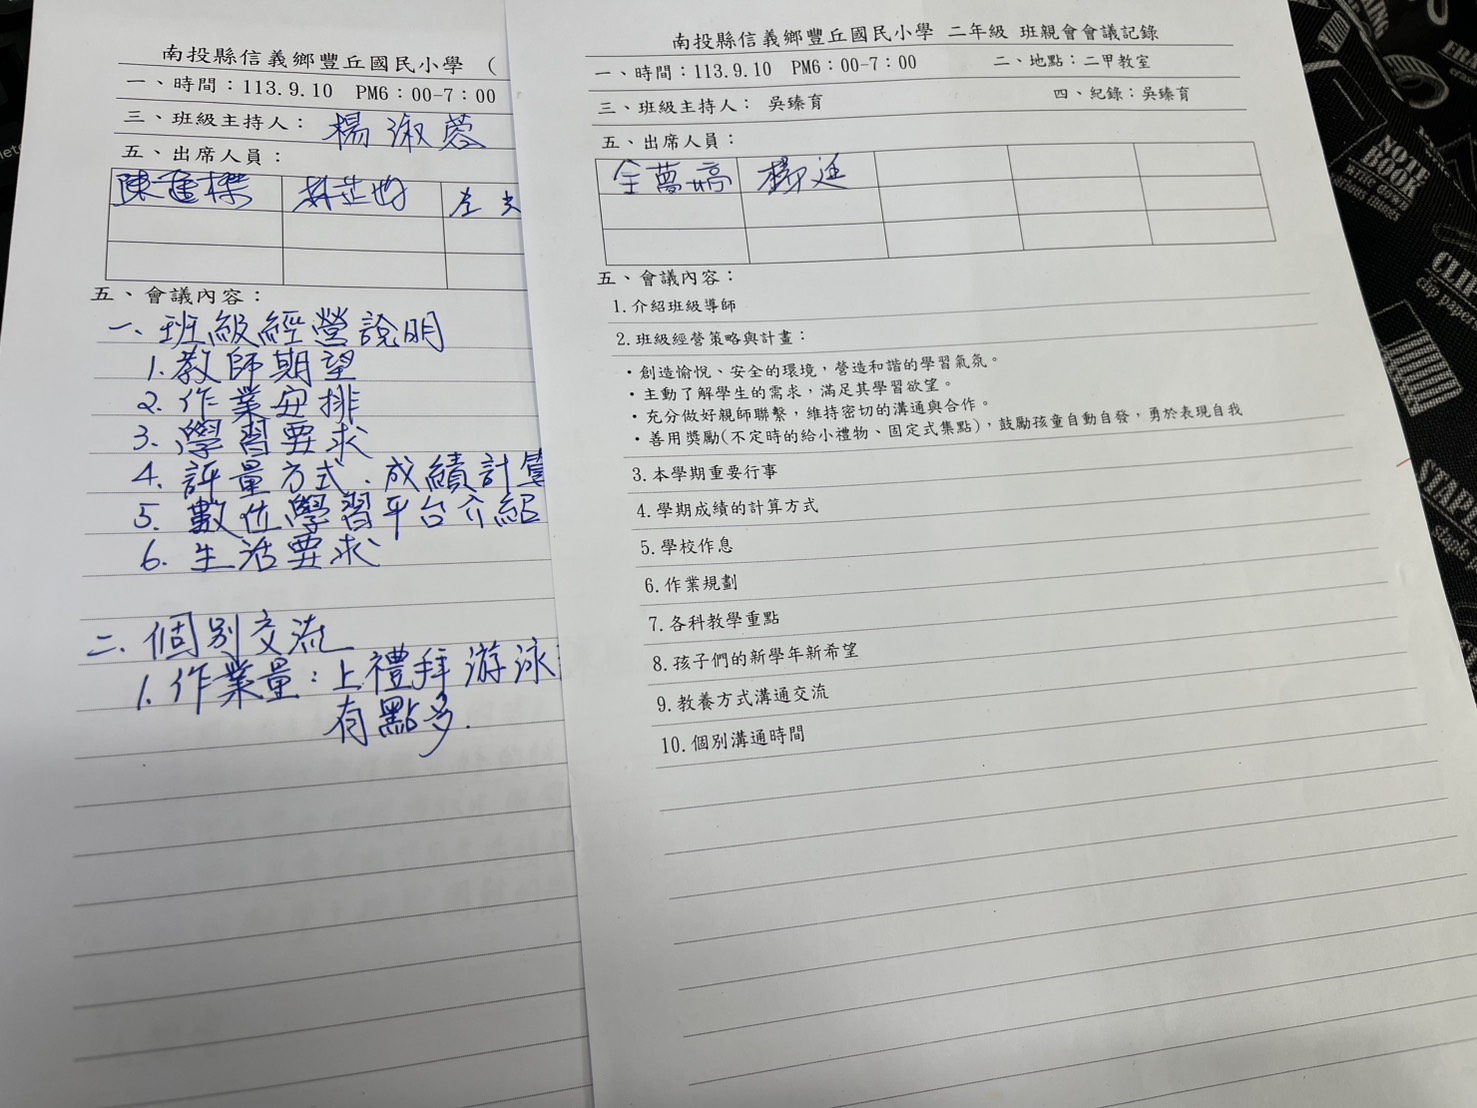 南投縣信義鄉豐丘國民小學 (
一、時間：113.9.10 PM6：00-7：00
三、班級主持人： 楊淑蓉
五、出席人員：
五、會議內容：
一、班級經營說明
1. 教師期望
2. 作業安排
3. 學習要求
4. 評量方式、成績計算
5. 數位學習平台介紹
6. 生活要求
二、個別交流
1. 作業量：上禮拜游泳
有點多.
南投縣信義鄉豐丘國民小學 二年級 班親會會議記錄
一、時間：113.9.10 PM6：00-7：00 二、地點：二甲教室
三、班級主持人： 吳臻育 四、紀錄：吳臻育
五、出席人員：
五、會議內容：
1.介紹班級導師
2.班級經營策略與計畫：
・創造愉悅、安全的環境，營造和諧的學習氣氛。
・主動了解學生的需求，滿足其學習欲望。
・充分做好親師聯繫，維持密切的溝通與合作。
・善用獎勵(不定時的給小禮物、固定式集點)，鼓勵孩童自動自發，勇於表現自我
3.本學期重要行事
4.學期成績的計算方式
5.學校作息
6.作業規劃
7.各科教學重點
8.孩子們的新學年新希望
9.教養方式溝通交流
10.個別溝通時間
NOTE
BOOK
CLIP
clip paper